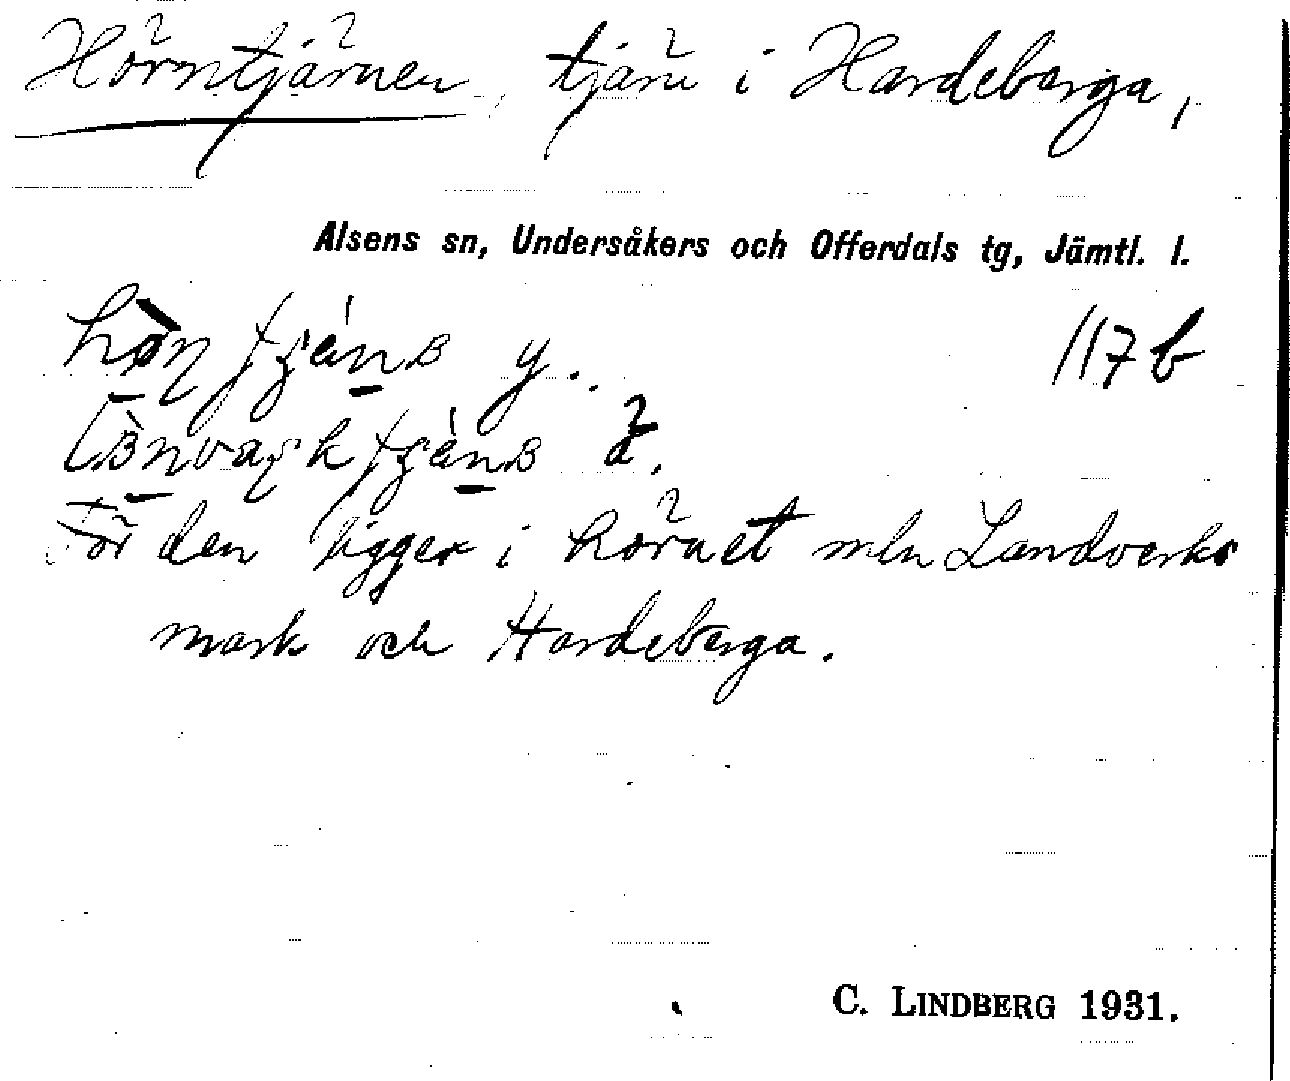 Hörntjärnen, tjärn i Hardeberga,
Alsens sn, Undersåkers och Offerdals tg, Jämtl. l.
y.. 117b
ä.
För den ligger i hörnet mln Landverks
mark och Hardeberga.
C. LINDBERG 1931.